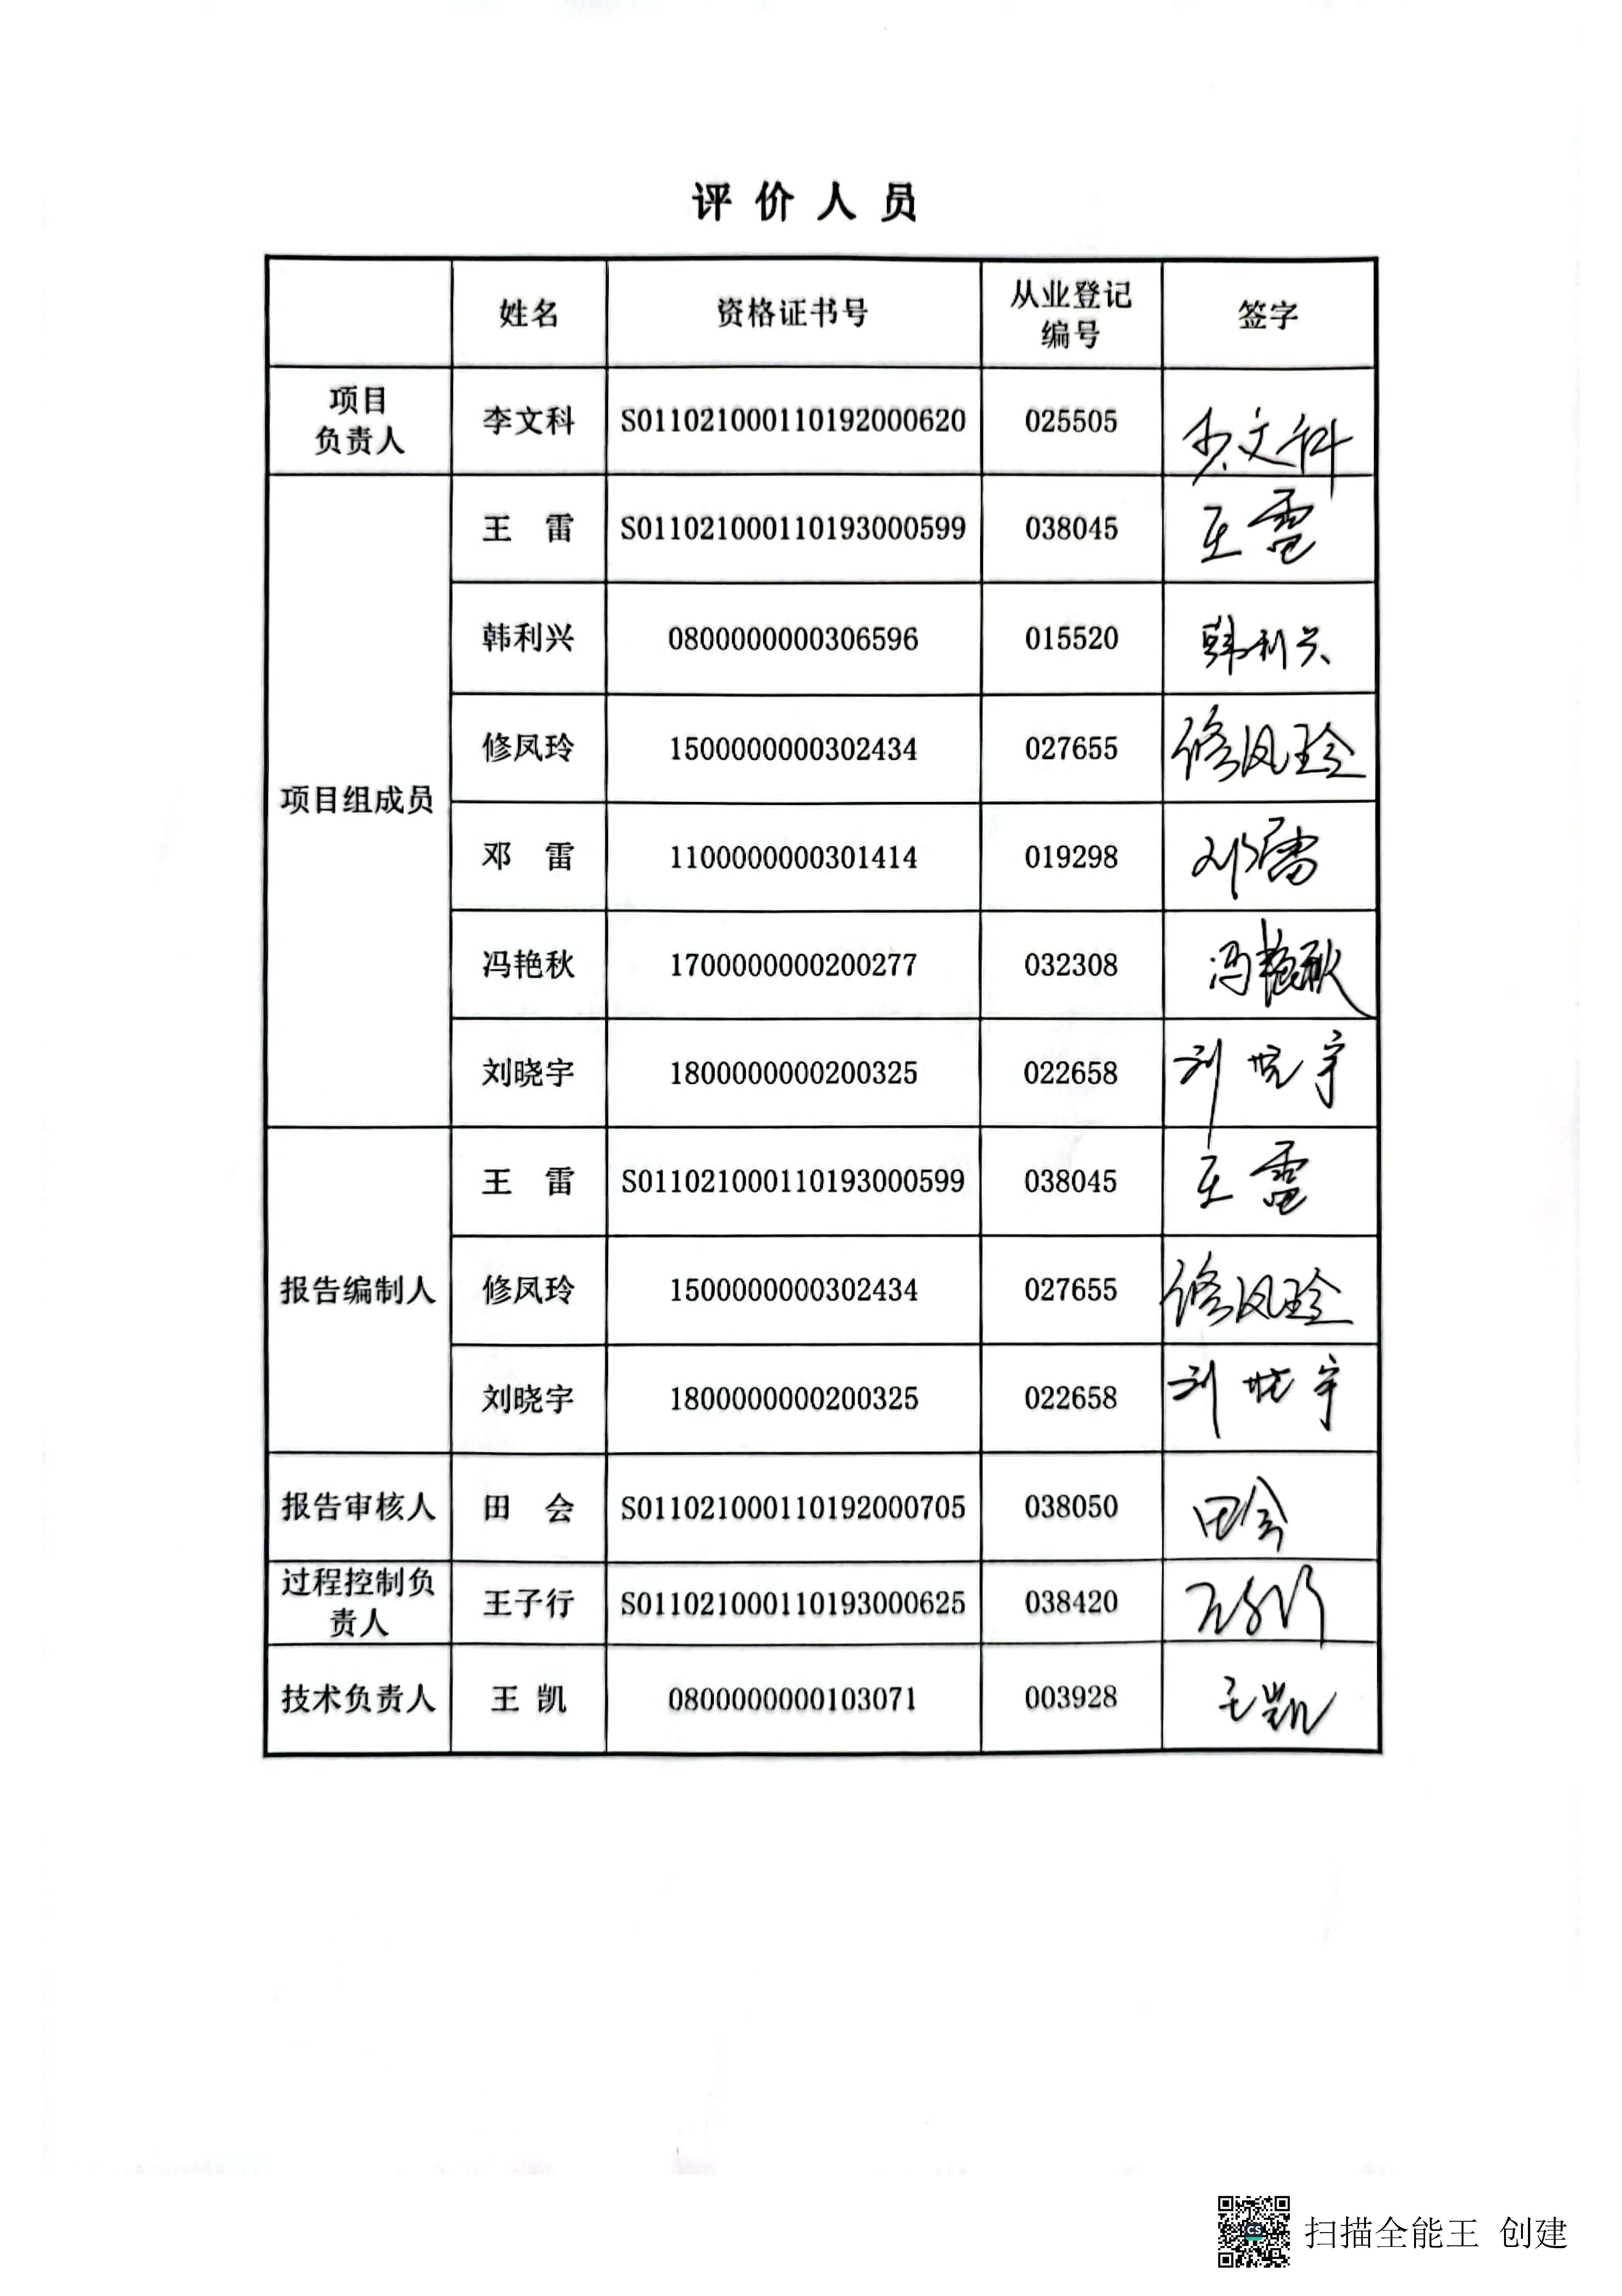 评价人员
姓名 资格证书号 从业登记编号 签字
项目负责人 李文科 S011021000110192000620 025505 李文科
项目组成员 王 雷 S011021000110193000599 038045 王雷
韩利兴 0800000000306596 015520 韩利兴
修凤玲 1500000000302434 027655 修凤玲
邓 雷 1100000000301414 019298 邓雷
冯艳秋 1700000000200277 032308 冯艳秋
刘晓宇 1800000000200325 022658 刘晓宇
报告编制人 王 雷 S011021000110193000599 038045 王雷
修凤玲 1500000000302434 027655 修凤玲
刘晓宇 1800000000200325 022658 刘晓宇
报告审核人 田 会 S011021000110192000705 038050 田会
过程控制负责人 王子行 S011021000110193000625 038420 王子行
技术负责人 王 凯 0800000000103071 003928 王凯
CS 扫描全能王 创建